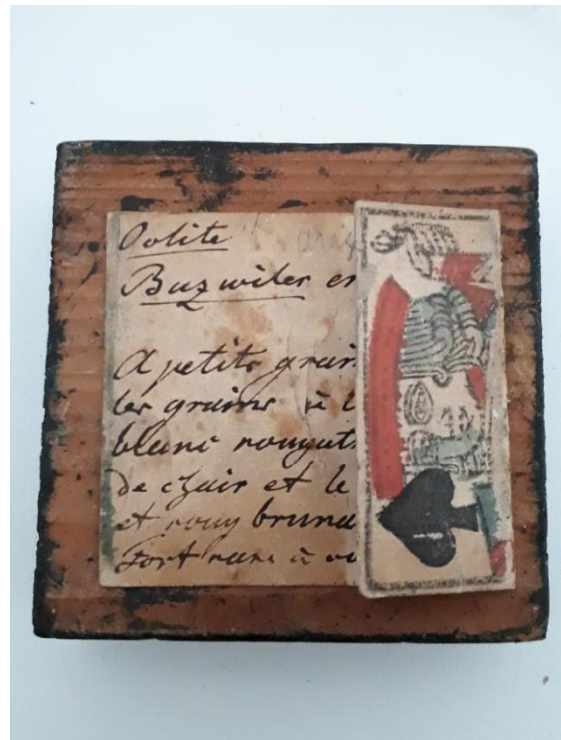 Oolite
Buzwiler en
A petits grain
les grains à l
blanc rougeat
de chair et le
et roug brunat
fort rare à